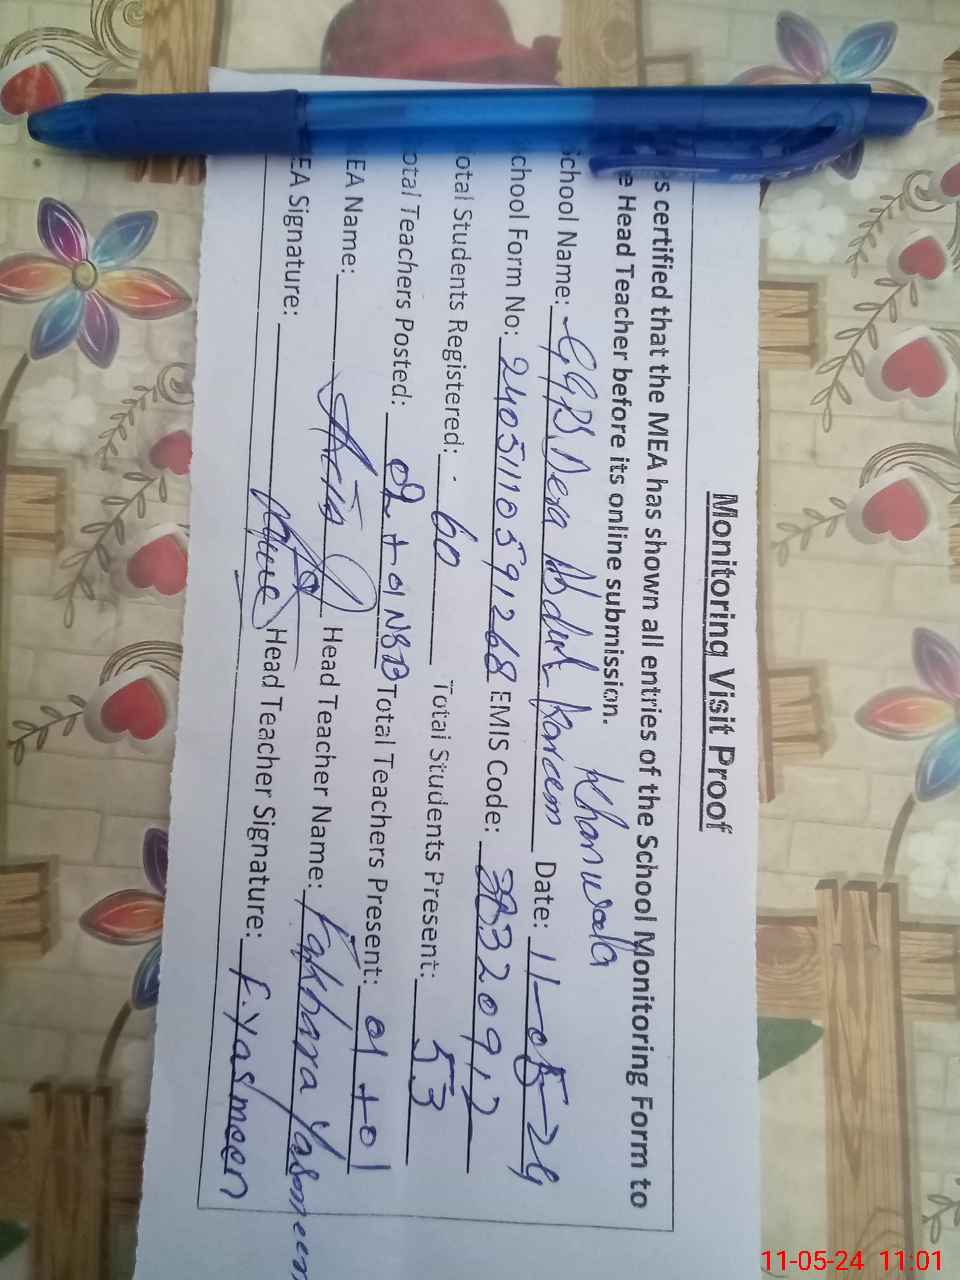 Monitoring Visit Proof
s certified that the MEA has shown all entries of the School Monitoring Form to
e Head Teacher before its online submission.
Khanwala
School Name: GGPS Dera Abdul Kareem Date: 11-05-24
chool Form No: 24051110591268 EMIS Code: 38320912
otal Students Registered: 60 Total Students Present: 53
otal Teachers Posted: 02 + 01 NSB Total Teachers Present: 01 + 01
EA Name: Head Teacher Name: Fakhara Yasmeen
EA Signature: Head Teacher Signature: F. Yasmeen
11-05-24 11:01